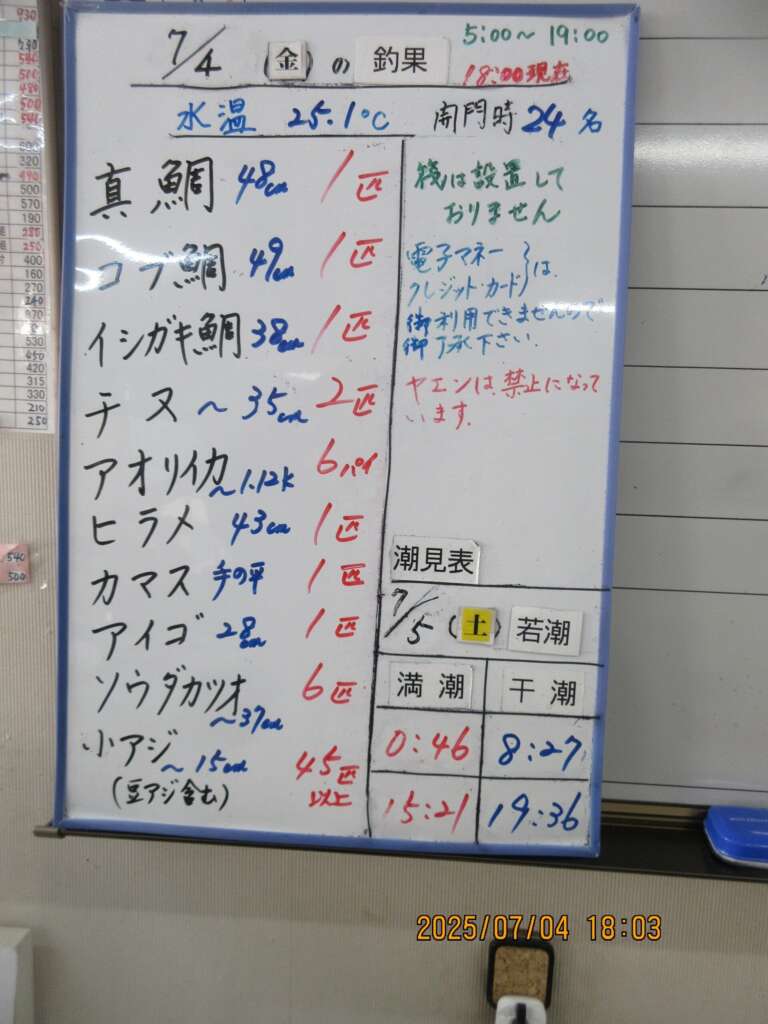 7/4 (金) の 釣果
5:00~19:00
18:00現在
水温 25.1℃ 開門時 24名
真鯛 48cm 1匹
コブ鯛 49cm 1匹
イシガキ鯛 38cm 1匹
チヌ ~35cm 2匹
アオリイカ ~1.12k 6パイ
ヒラメ 43cm 1匹
カマス 手の平 1匹
アイゴ 28cm 1匹
ソウダカツオ ~37cm 6匹
小アジ ~15cm 45匹以上
(豆アジ含む)
筏は設置して
おりません
電子マネー
クレジット・カード は
御利用できませんので
御了承下さい.
ヤエンは禁止になって
います.
潮見表
7/5 (土) 若潮
満潮 干潮
0:46 8:27
15:21 19:36
930
530
540
500
480
500
540
320
490
500
570
190
280
250
400
160
270
240
870
530
450
420
315
330
210
250
540
500
2025/07/04 18:03